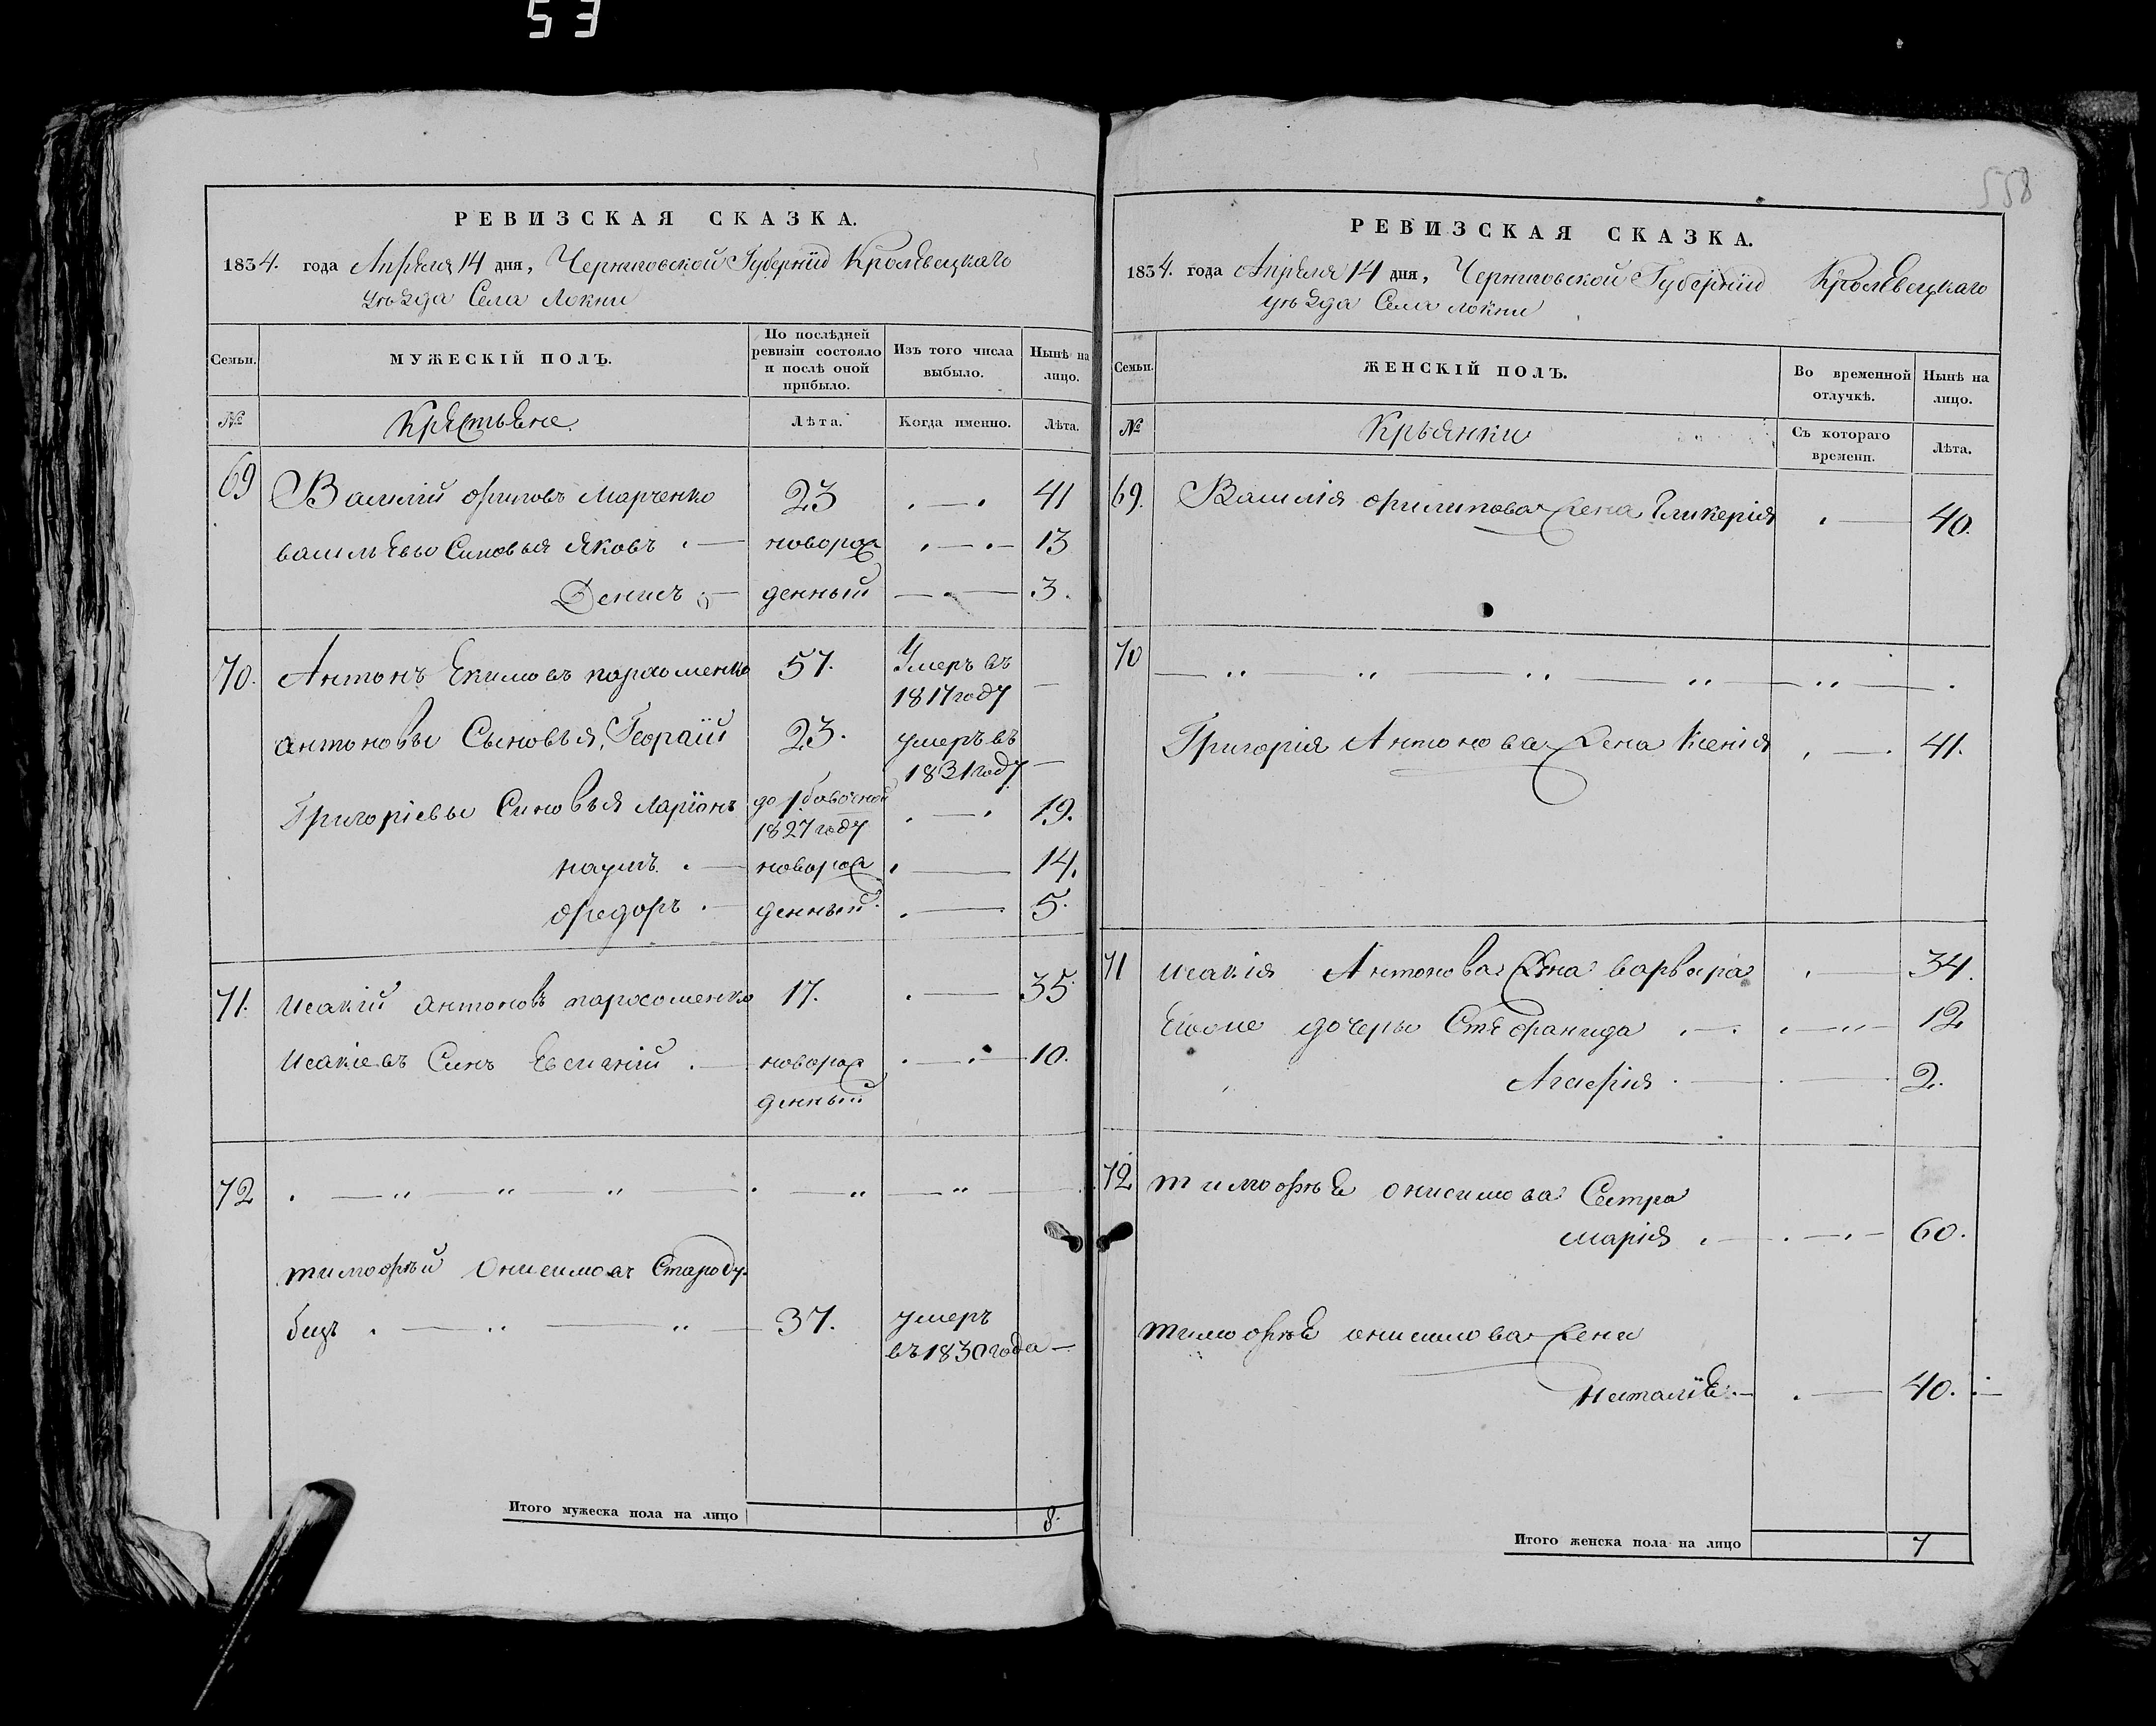 53
558
РЕВИЗСКАЯ СКАЗКА.
1834. года Апреля 14 дня, Черниговской Губернии Кролевецкаго
уезда Села Локни
Семьи.
МУЖЕСКІЙ ПОЛЪ.
По послѣдней ревизіи состояло и послѣ оной прибыло.
Изъ того числа выбыло.
Нынѣ на лицо.
№
Крестьяне.
Лѣта.
Когда именно.
Лѣта.
69 Василий Филиповъ Марченко 23 41
васильевы Синовья Яковъ новорож 13
Денисъ денный 3.
70. Антонъ Екимовъ пархоменко 57. Умеръ въ
1817 году
антоновы Сыновья, 23. умеръ въ
1831 году
Григоріевы Синовья Ларіонъ до бавочной 19.
1827 году
наумъ. новорож 14.
Федоръ денный 5.
71. Исакій антоновъ пархоменко 17. 35
Исакіевъ Синъ Евсигній новорож 10.
денный
72
тимофей Онисимовъ Староду-
бецъ 37. умеръ
въ 1830 года
Итого мужеска пола на лицо 8.
РЕВИЗСКАЯ СКАЗКА.
1834. года Апреля 14 дня, Черниговской Губернии Кролевецкаго
уезда Села локни
Семьи.
ЖЕНСКІЙ ПОЛЪ.
Во временной отлучкѣ.
Нынѣ на лицо.
№
Крьянки
Съ котораго времени.
Лѣта.
69. Василія Филипова жена Гликерія 40.
70
Григорія Антонова жена Ксенія 41.
71 исакія Антонова жена варвара 34.
Егоже дочеры Стефанида 12
2.
72 тимофее онисимова Сестра
марія 60.
тимофее онисимова жена
Наталіе 40.
Итого женска пола на лицо 7